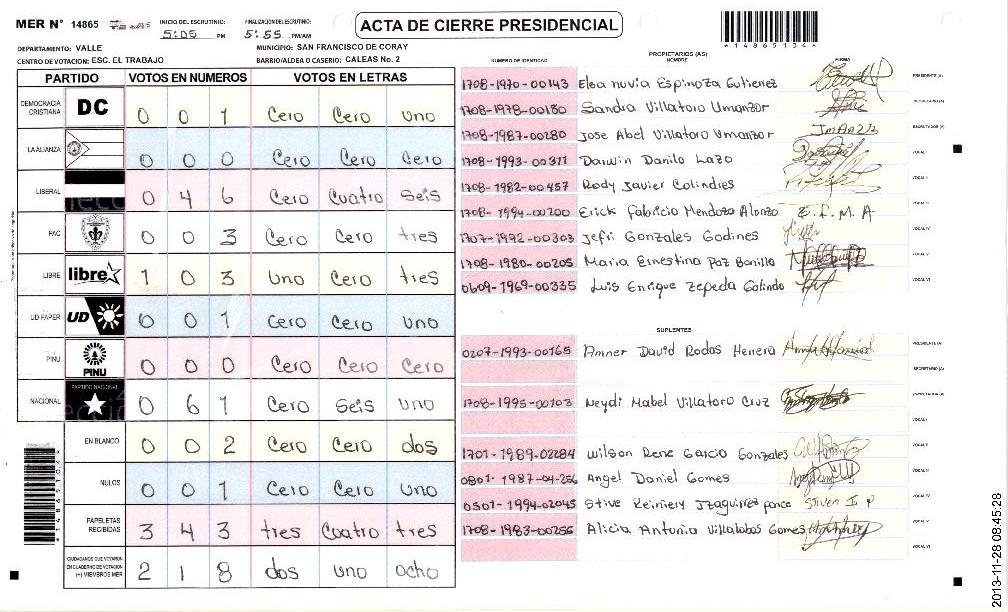 MER N° 14865
INICIO DEL ESCRUTINIO: 5:05 PM
FINALIZACION DEL ESCRUTINIO: 5:55 PM/AM
ACTA DE CIERRE PRESIDENCIAL
*14865104*
DEPARTAMENTO: VALLE
MUNICIPIO: SAN FRANCISCO DE CORAY
CENTRO DE VOTACION: ESC. EL TRABAJO
BARRIO/ALDEA O CASERIO: CALEAS No. 2
PARTIDO VOTOS EN NUMEROS VOTOS EN LETRAS
DEMOCRACIA CRISTIANA DC 0 0 1 Cero Cero uno
LA ALIANZA 0 0 0 Cero Cero Cero
LIBERAL 0 4 6 Cero Cuatro Seis
PAC 0 0 3 Cero Cero tres
LIBRE libre 1 0 3 uno Cero tres
UD FAPER UD 0 0 1 Cero Cero uno
PINU PINU 0 0 0 Cero Cero Cero
NACIONAL PARTIDO NACIONAL 0 6 1 Cero Seis uno
EN BLANCO 0 0 2 Cero Cero dos
NULOS 0 0 1 Cero Cero uno
PAPELETAS RECIBIDAS 3 4 3 tres Cuatro tres
CIUDADANOS QUE VOTARON EN CUADERNO DE VOTACION (+) MIEMBROS MER 2 1 8 dos uno ocho
PROPIETARIOS (AS)
NUMERO DE IDENTIDAD NOMBRE FIRMA
1708-1970-00143 Elsa novia Espinoza Gutierrez PRESIDENTE (A)
1708-1978-00180 Sandra Villatoro Umanzor SECRETARIO (A)
1708-1987-00280 Jose Abel Villatoro Umanzor ESCRUTADOR (A)
1708-1993-00311 Darwin Danilo Lazo VOCAL I
1708-1982-00457 Rody Javier Colindres VOCAL II
1708-1994-00200 Erick Fabricio Mendoza Alonzo E.F.M.A VOCAL III
1707-1992-00303 Jefri Gonzales Godines VOCAL IV
1708-1980-00205 Maria Ernestina Paz Bonilla VOCAL V
0609-1969-00335 Luis Enrique Zepeda Galindo VOCAL VI
SUPLENTES
0207-1993-00165 Amner David Rodas Herrera PRESIDENTE (A)
SECRETARIO (A)
1708-1995-00103 Neydi Mabel Villatoro Cruz ESCRUTADOR (A)
VOCAL I
1701-1989-02284 Wilson Rene Garcia Gonzales VOCAL II
0801-1987-04-256 Angel Daniel Gomes VOCAL III
0501-1994-02045 Stive Reiniery Izaguirre ponce Stiven I P VOCAL IV
1708-1983-00256 Alicia Antonia Villalobos Gomes VOCAL V
VOCAL VI
2013-11-28 08:45:28